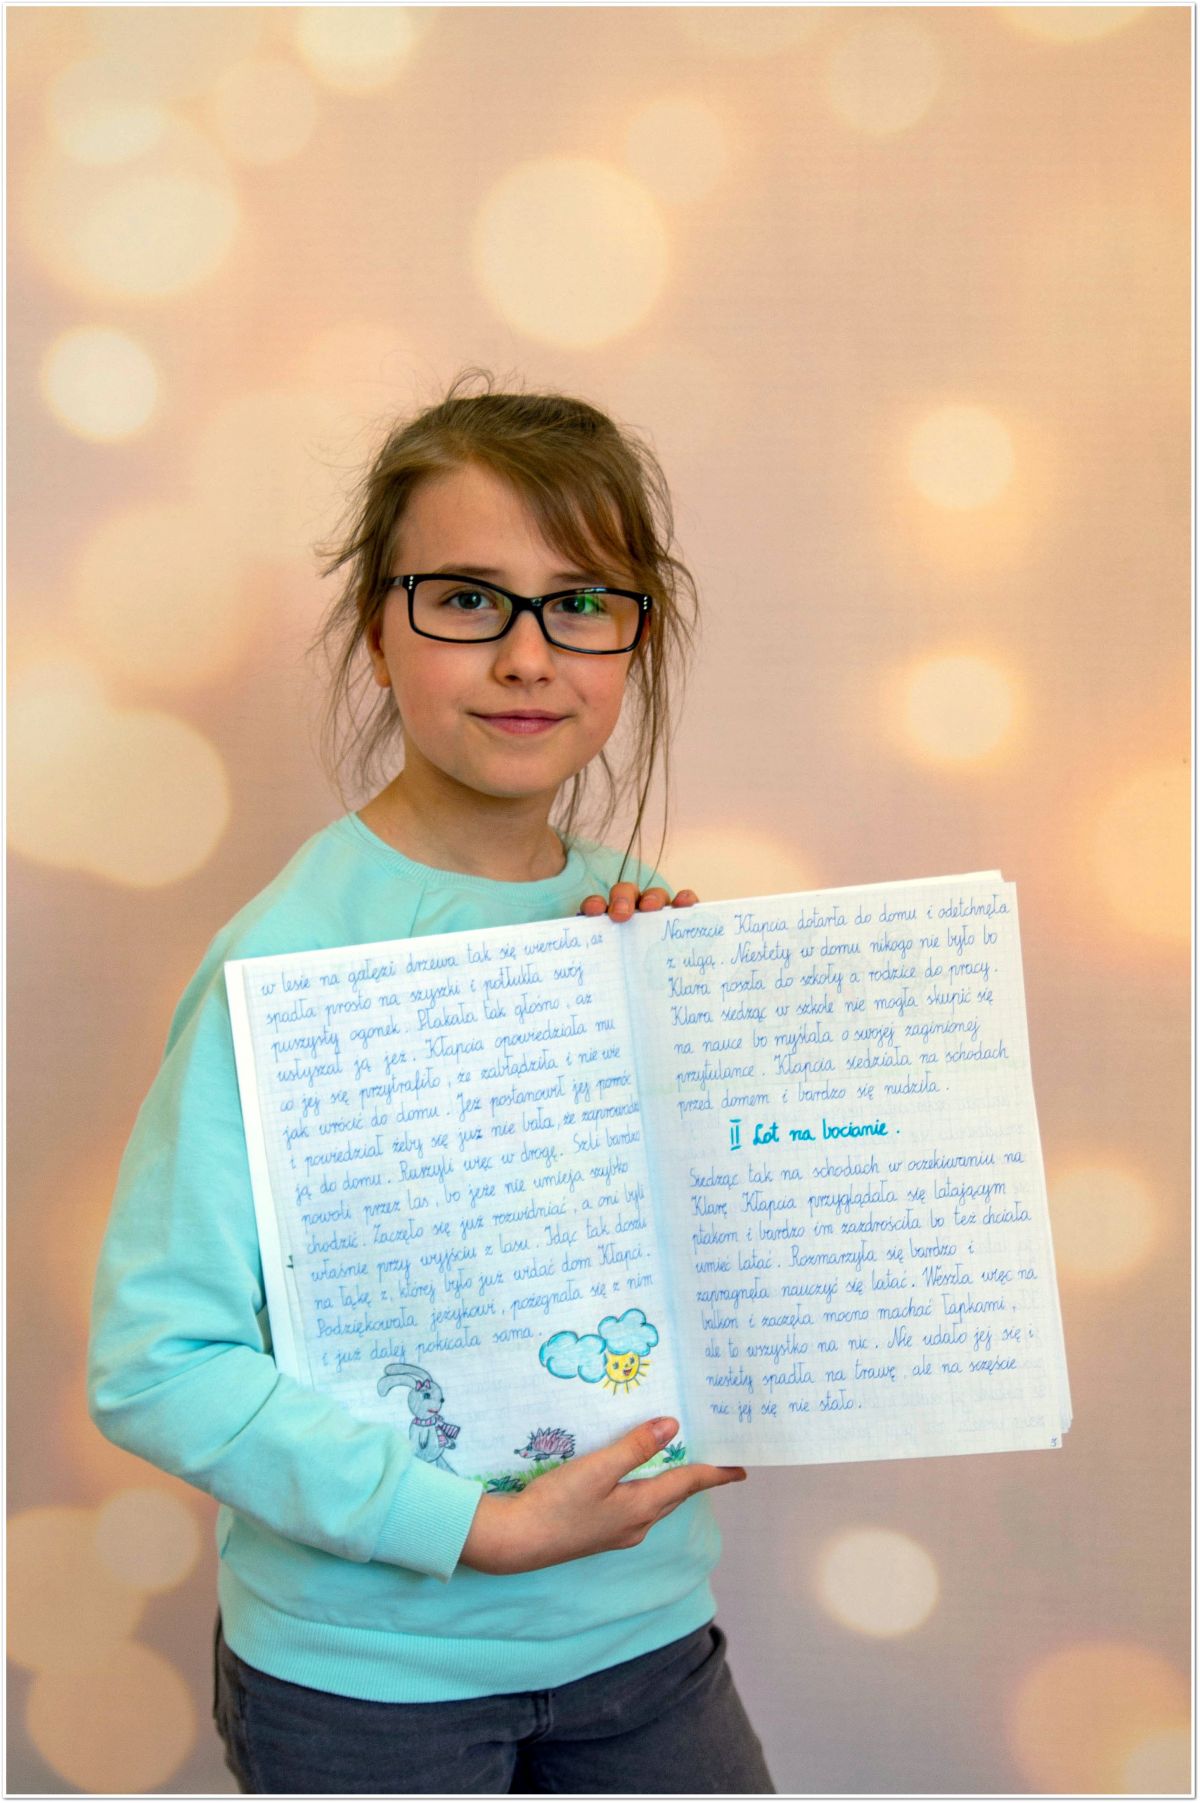 w lesie na gałęzi drzewa tak się wierciła, aż
spadła prosto na szyszki i potłukła swój
puszysty ogonek. Płakała tak głośno, aż
usłyszał ją jeż. Kłapcia opowiedziała mu
co jej się przytrafiło, że zabłądziła i nie wie
jak wrócić do domu. Jeż postanowił jej pomóc
i powiedział żeby się już nie bała, że zaprowadzi
ją do domu. Ruszyli więc w drogę. Szli bardzo
powoli przez las, bo jeże nie umieją szybko
chodzić. Zaczęło się już rozwidniać, a oni byli
właśnie przy wyjściu z lasu. Idąc tak doszli
na łąkę z, której było już widać dom Kłapci.
Podziękowała jeżykowi, pożegnała się z nim
i już dalej pokicała sama.
Nareszcie Kłapcia dotarła do domu i odetchnęła
z ulgą. Niestety w domu nikogo nie było bo
Klara poszła do szkoły a rodzice do pracy.
Klara siedząc w szkole nie mogła skupić się
na nauce bo myślała o swojej zaginionej
przytulance. Kłapcia siedziała na schodach
przed domem i bardzo się nudziła.
II Lot na bocianie.
Siedząc tak na schodach w oczekiwaniu na
Klarę Kłapcia przyglądała się latającym
ptakom i bardzo im zazdrościła bo też chciała
umieć latać. Rozmarzyła się bardzo i
zapragnęła nauczyć się latać. Weszła więc na
balkon i zaczęła mocno machać łapkami,
ale to wszystko na nic. Nie udało jej się i
niestety spadła na trawę, ale na szczęście
nic jej się nie stało.